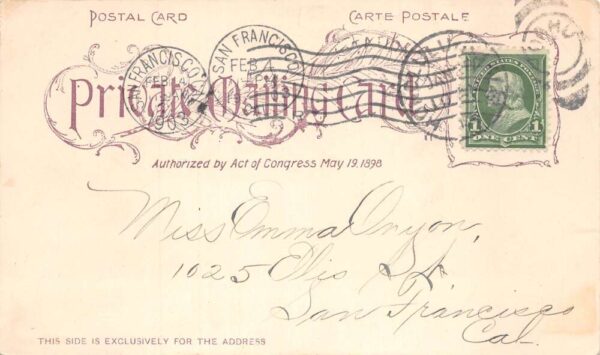 POSTAL CARD
CARTE POSTALE
SAN FRANCISCO
FEB 4
Private Mailing Card
1903
ONE CENT
Authorized by Act of Congress May 19. 1898
Miss Emma Onyon,
1025 Ellis St.
San Francisco
Cal-
THIS SIDE IS EXCLUSIVELY FOR THE ADDRESS